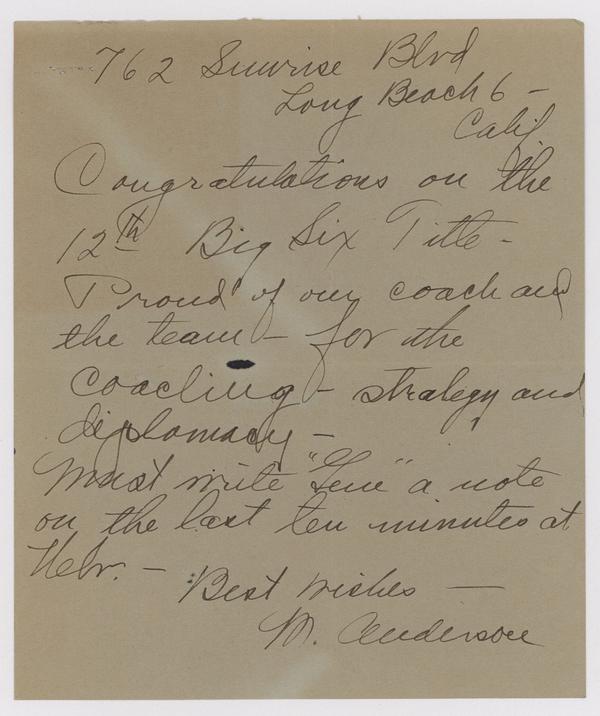 762 Sunrise Blvd
Long Beach 6 -
Calif
Congratulations on the
12th Big Six Title -
Proud of our coach and
the team - for the
coaching - strategy and
diplomacy -
Must write "Gene" a note
on the last ten minutes at
Nebr. -
Best wishes -
M. Anderson